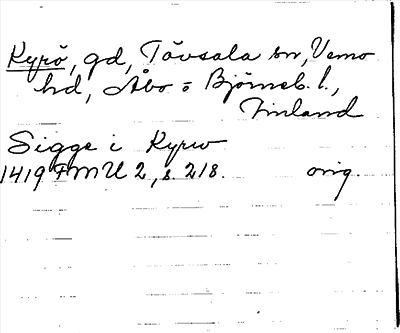 Kyrö, gd, Tövsala sn, Vemo
hd, Åbo o Björneb. l.,
Finland
Sigge i Kyrw
1419 FMU 2, s. 218. orig.